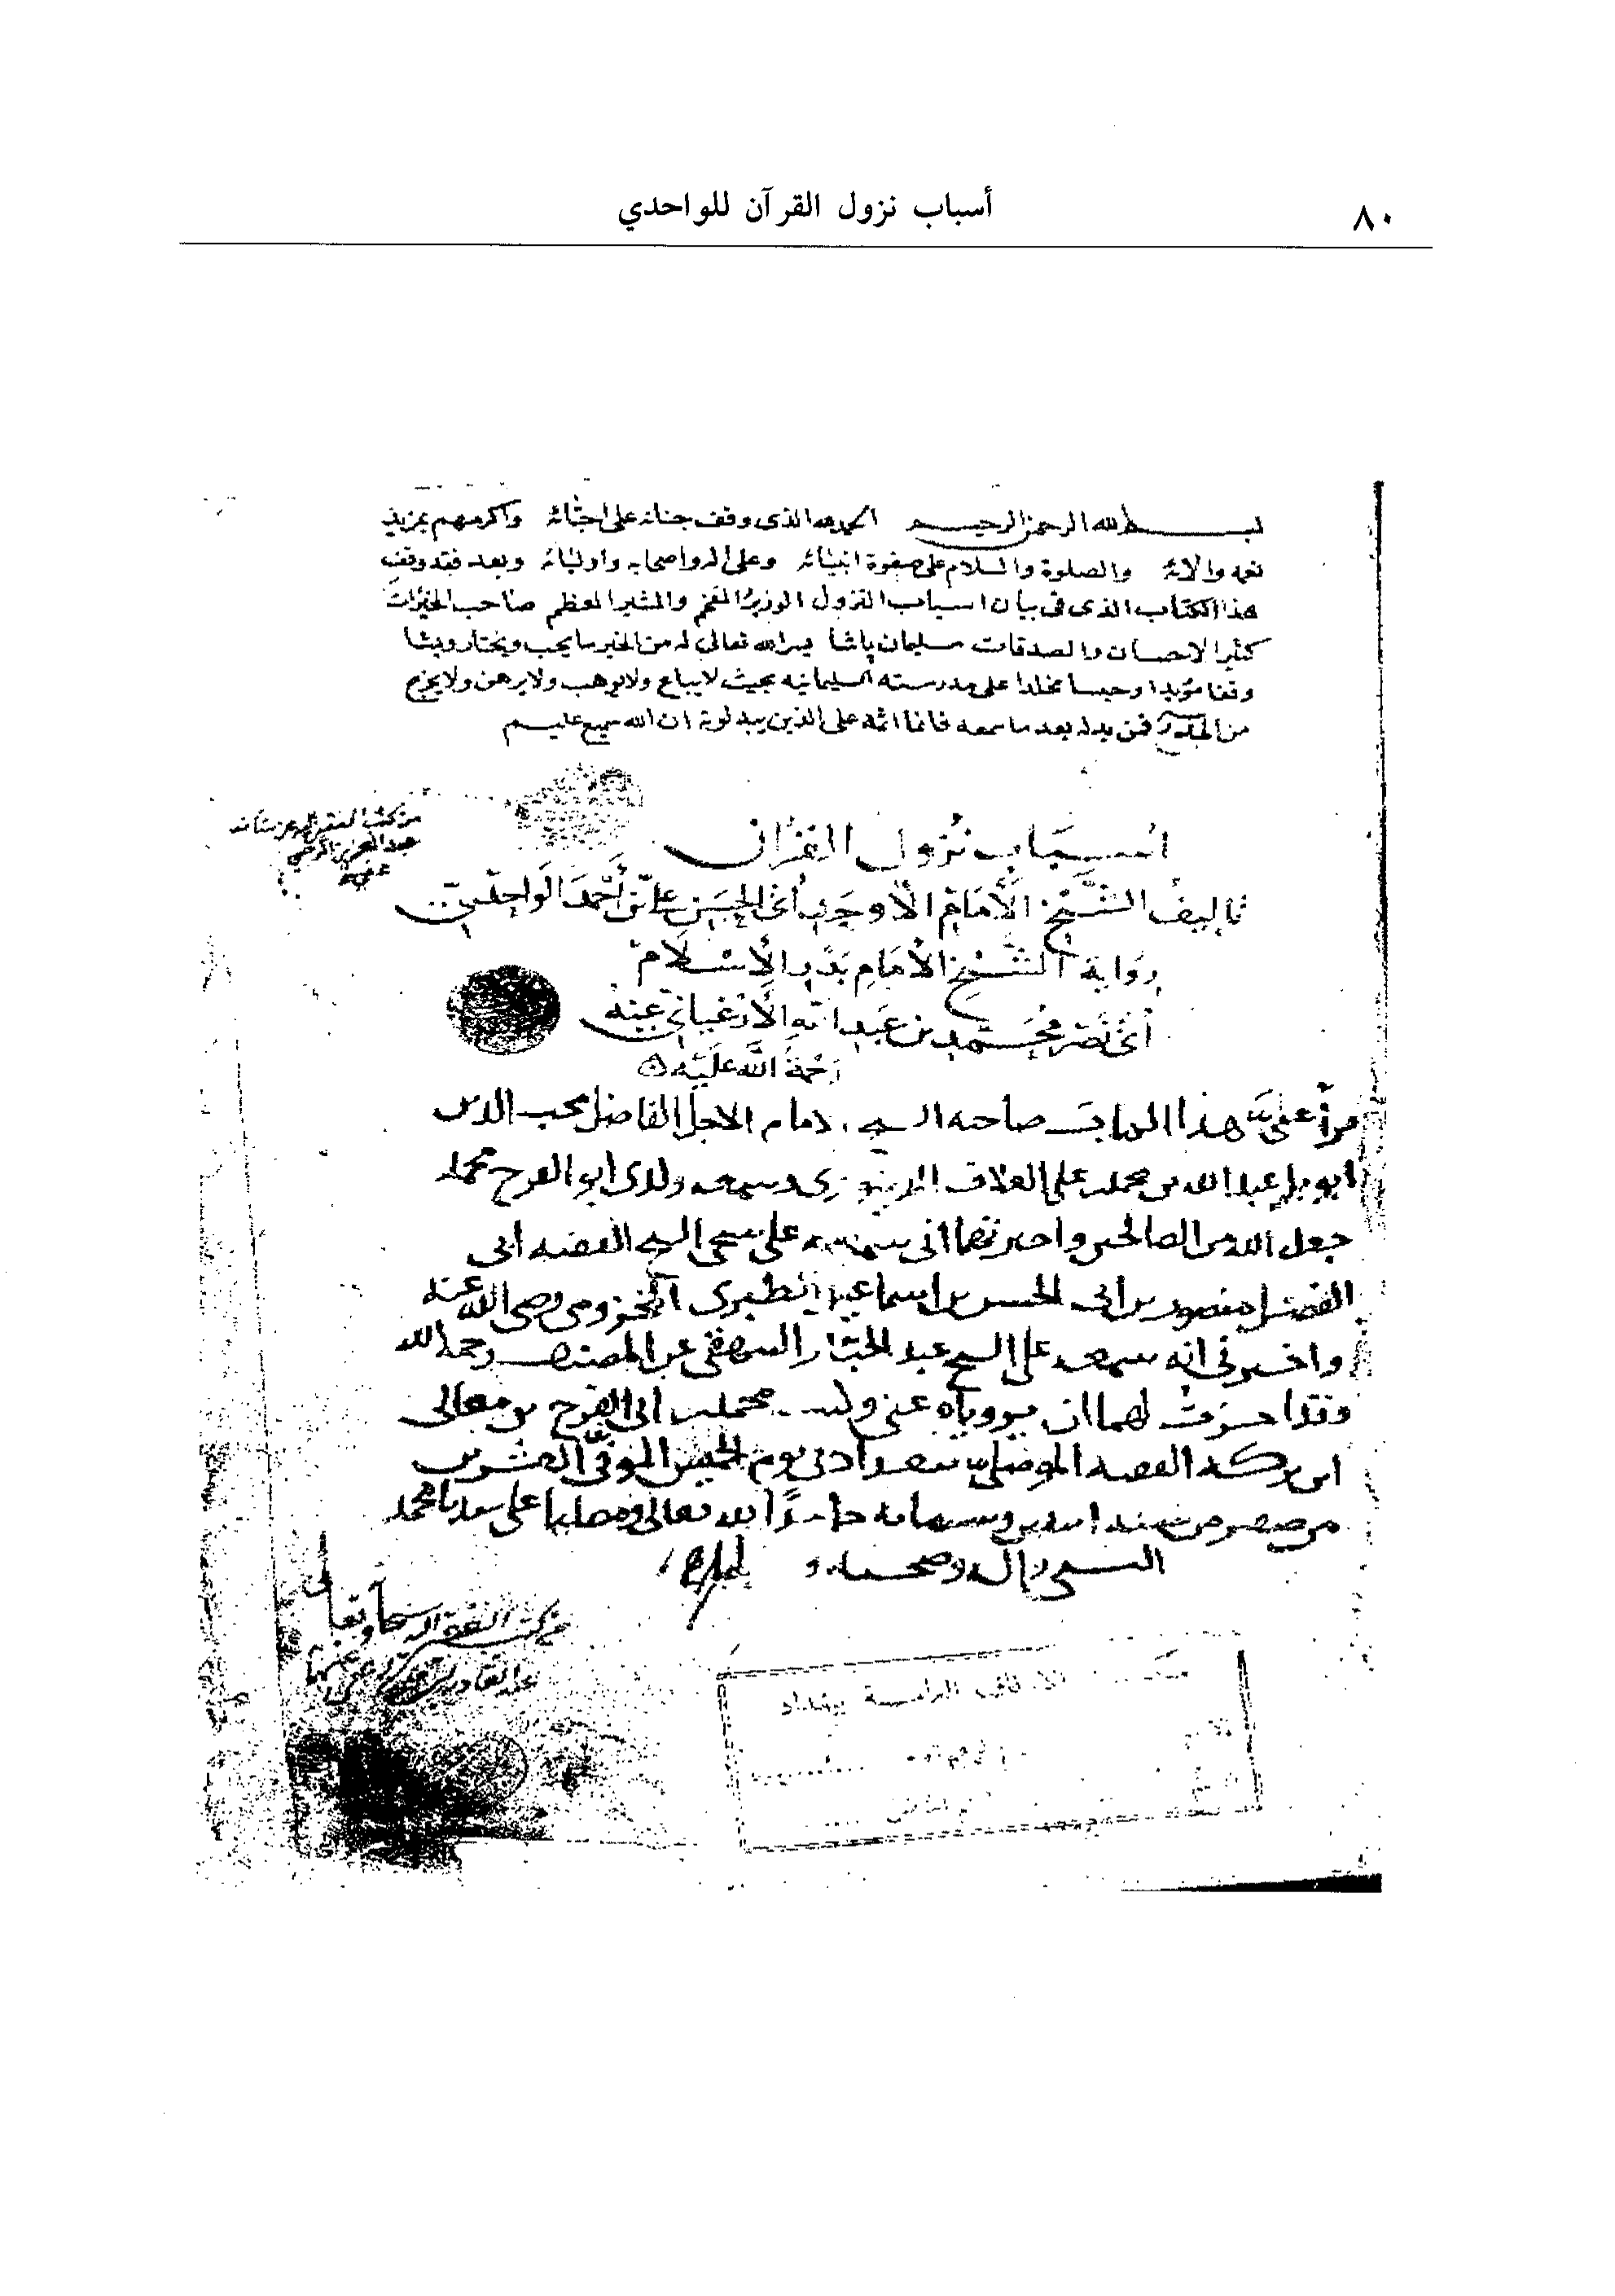 ٨٠
أسباب نزول القرآن للواحدي
بسم الله الرحمن الرحيم الحمد لله الذى وقف جنانه على احبائه واكرمهم بمزيد
نعمه والائه والصلوة والسلام على صفوة انبيائه وعلى اله واصحابه واوليائه وبعد فقد وقف
هذا الكتاب الذى فى بيان اسباب النزول الوزير المفخم والمشير المعظم صاحب الخيرات
كثير الاحسان والصدقات سليمان پاشا يسر الله تعالى له من الخير ما يحب ويختار ويشا
وقفا مؤبدا وحبسا مخلدا على مدرسته السليمانيه بحيث لا يباع ولا يوهب ولا يرهن ولا يخرج
من المدرسة فمن بدله بعد ما سمعه فانما اثمه على الذين يبدلونه ان الله سميع عليم
من كتب الفقير اليه عز شانه
عبد العزيز
عفي عنه
اسباب نزول القرآن
تاليف الشيخ الامام الاوحد ابي الحسن علي بن احمد الواحدي
رواية الشيخ الامام بدر الاسلام
ابي نصر محمد بن عبد الله الارغياني عنه
رحمة الله عليه
قرأ علي هذا الكتاب صاحبه الشيخ الامام الاجل الفاضل محب الدين
ابو عبد الله بن محمد بن علي العلاف الدينوري وسمعه ولدي ابو الفرج محمد
جعله الله من الصالحين واخبرتهما اني سمعته على شيخي الشيخ الفقيه ابي
الفضل منصور بن ابي الحسن بن اسماعيل الطبري المخزومي رضي الله عنه
واخبرني انه سمعه على الشيخ عبد الجبار البيهقي عن المصنف رحمه الله
وقد اجزت لهما ان يروياه عني وكتب محمد بن ابي الفرج بن معالي
ابن بركة الفقيه الموصلي ببغداد في يوم الخميس الموفي العشرين
من صفر من سنة وستمائة حامدا لله تعالى ومصليا على سيدنا محمد
النبي واله وصحبه
من كتب الفقير اليه سبحانه وتعالى
عبد القادر
مكتبة الاوقاف العامة ببغداد